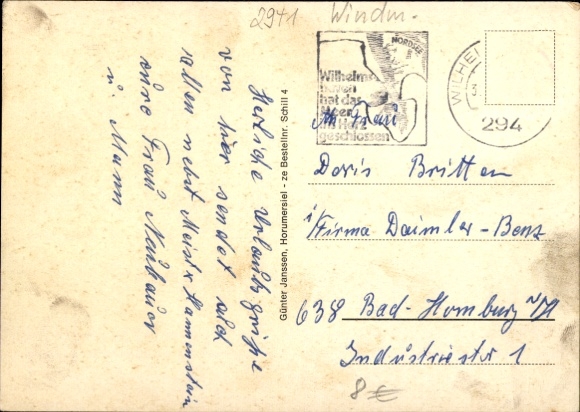 2941 Windm.
Herzliche Urlaubsgrüße
von hier sendet euch
allen nebst Meister Hammenstein
eure Frau Neubauer
u Mann
Günter Janssen, Horumersiel - ze Bestellnr. Schill 4
NORDSEE
Wilhelms-
haven
hat das
Meer
ins Herz
geschlossen
WILHE
294
An Frau
Doris Britten
i/Firma Daimler-Benz
638 Bad-Homburg v/H
Industriestr 1
8 €